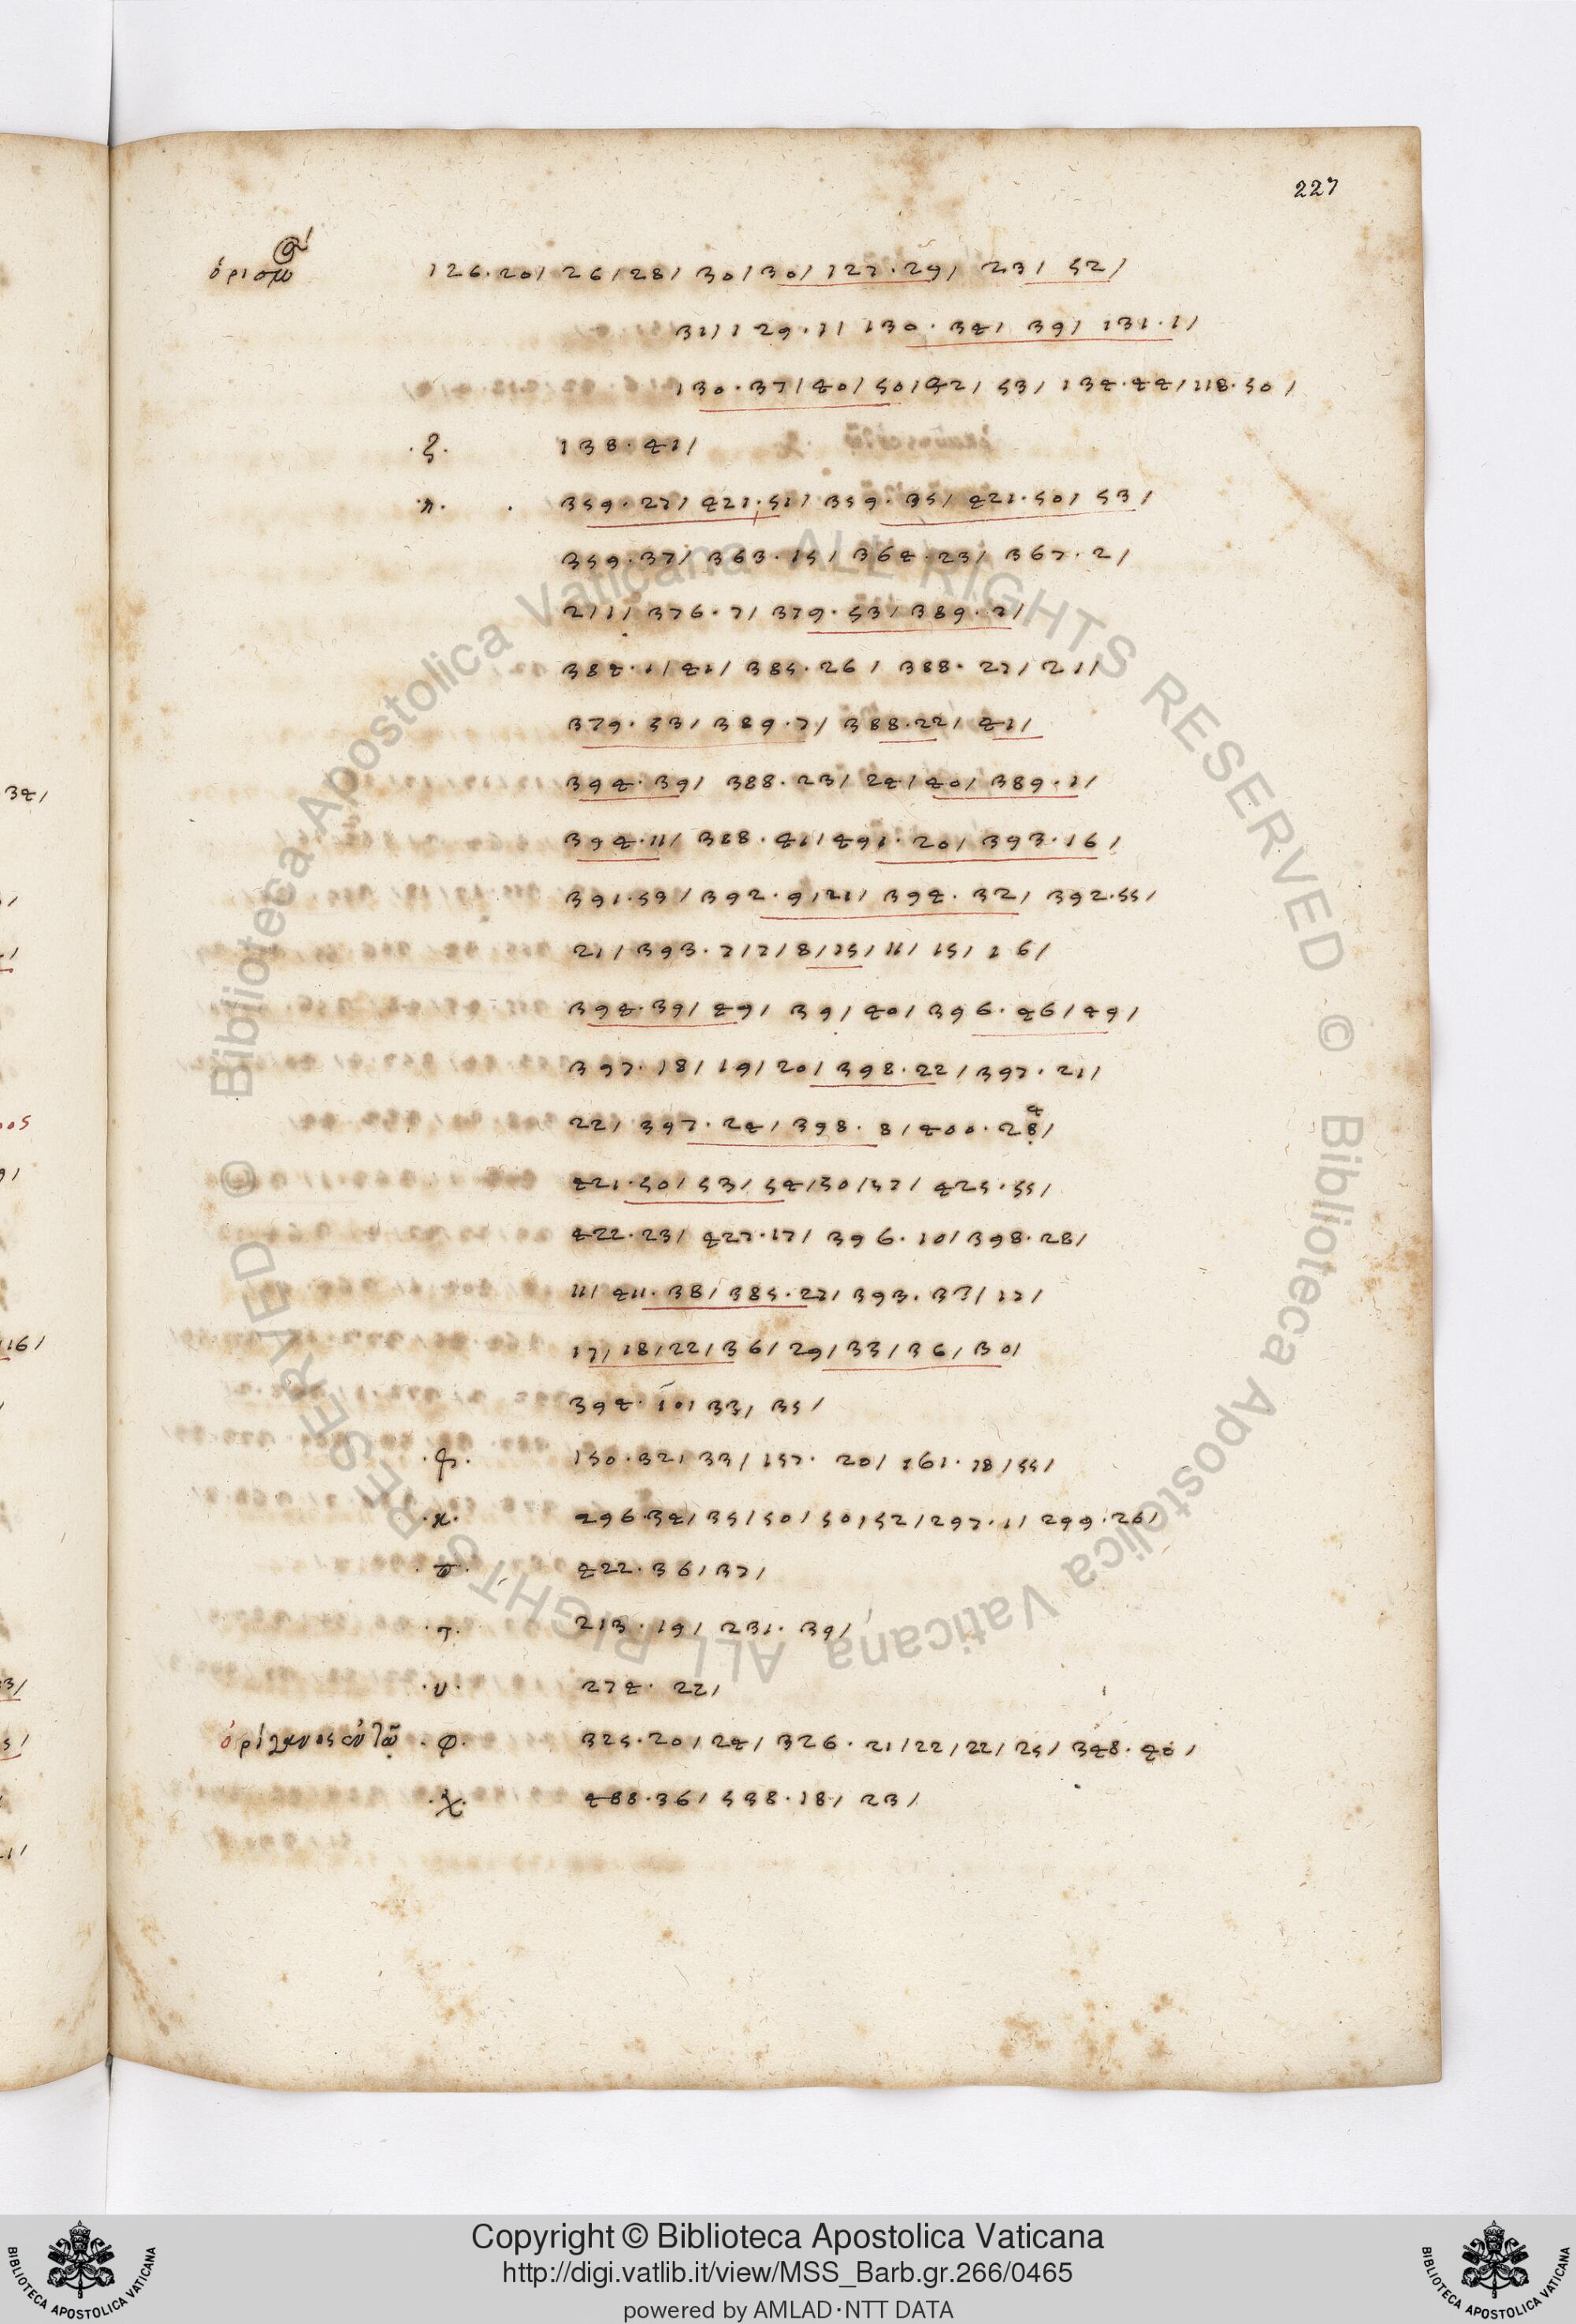 227
126.20/ 26/28/ 30/30/ 127.29/ 23/ 52/
31/ 129.11/ 130.34/ 39/ 131.1/
130.37/40/50/42/ 53/ 134.44/118.50/
.ζ. 138.41/
.η. 359.27/ 421.51/ 359.35/ 421.50/ 53/
359.37/ 363.15/ 364.23/ 367.2/
2/11/ 376.7/ 379.53/ 389.2/
384.1/41/ 385.26/ 388.27/ 21/
379.53/ 389.7/ 388.22/ 41/
394.39/ 388.23/ 24/40/ 389.1/
394.11/ 388.41/491.20/ 393.16/
391.59/ 392.9/21/ 394.32/ 392.55/
21/ 393.7/7/8/15/11/15/16/
394.39/ 49/ 39/ 40/ 396.46/49/
397.18/ 19/ 20/ 398.22/ 397.21/
22/ 397.24/ 398.8/400.28/
421.50/ 53/ 54/50/57/ 425.55/
422.23/ 427.17/ 396.10/ 398.28/
11/ 411.38/ 385.27/ 393.33/ 17/
17/ 18/22/36/ 29/33/36/30/
394.10/ 33/ 35/
150.32/ 33/ 157.20/ 161.18/55/
.κ. 296.34/35/50/50/52/297.1/ 299.26/
422.36/37/
.τ. 213.19/ 231.39/
.υ. 274.22/
.φ. 325.20/ 24/ 326.21/22/22/25/ 348.40/
.χ. 488.36/ 538.18/ 23/
34/
116/
Biblioteca Apostolica Vaticana ALL RIGHTS RESERVED © Biblioteca Apostolica Vaticana ALL RIGHTS RESERVED ©
Copyright © Biblioteca Apostolica Vaticana
http://digi.vatlib.it/view/MSS_Barb.gr.266/0465
powered by AMLAD·NTT DATA
BIBLIOTECA APOSTOLICA VATICANA
BIBLIOTECA APOSTOLICA VATICANA